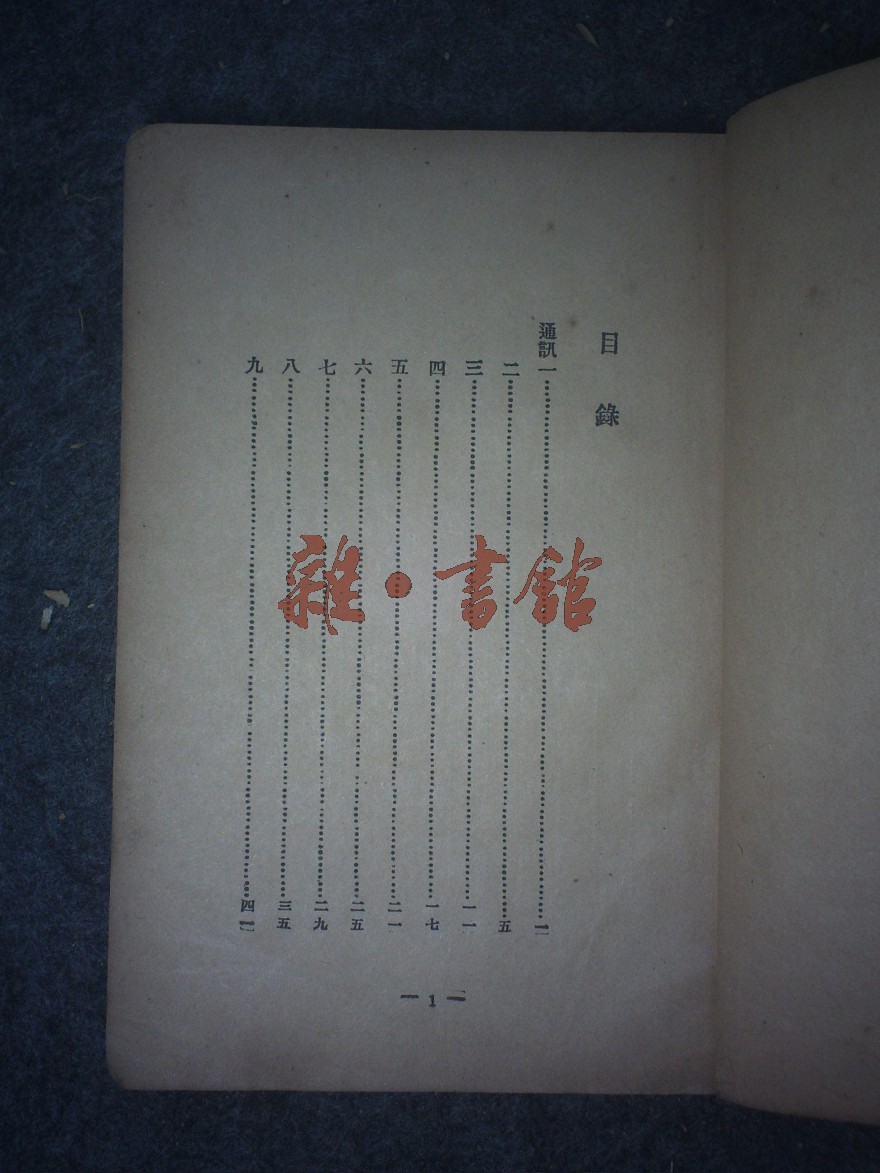 目錄
通訊一
二………五
三………一一
四………一七
五………二一
六………二五
七………二九
八………三五
九………四
— 1 —
雜·書館